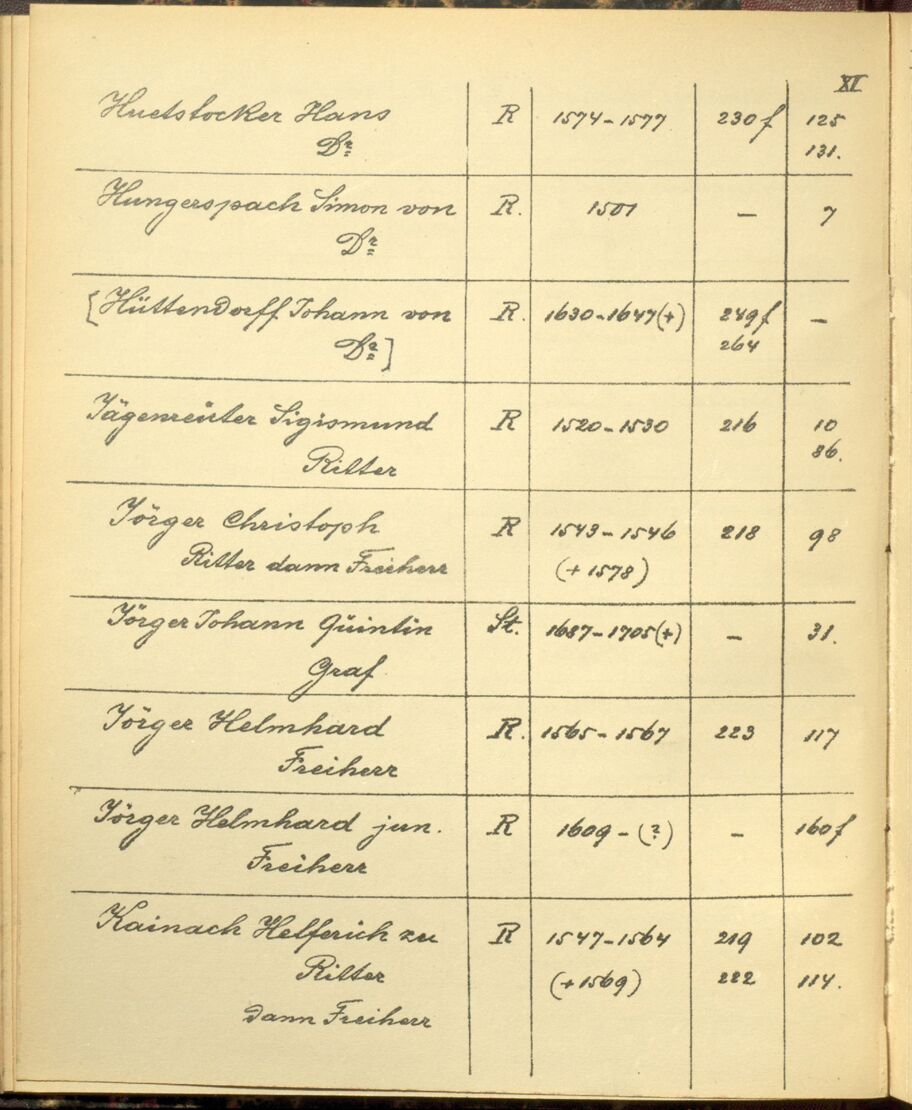 XI
Huetstocker Hans R 1574-1577 230f 125
Dr 131.
Hungerspach Simon von R. 1501 — 7
Dr
[Hüttendorff Johann von R. 1630-1647(+) 249f —
Dr] 264
Jägenreuter Sigismund R 1520-1530 216 10
Ritter 86.
Jörger Christoph R 1543-1546 218 98
Ritter dann Freiherr (+1578)
Jörger Johann Quintin St. 1687-1705(+) — 31.
Graf
Jörger Helmhard R. 1565-1567 223 117
Freiherr
Jörger Helmhard jun. R 1609-(?) — 160f
Freiherr
Kainach Helferich zu R 1547-1564 219 102
Ritter (+1569) 222 114.
dann Freiherr